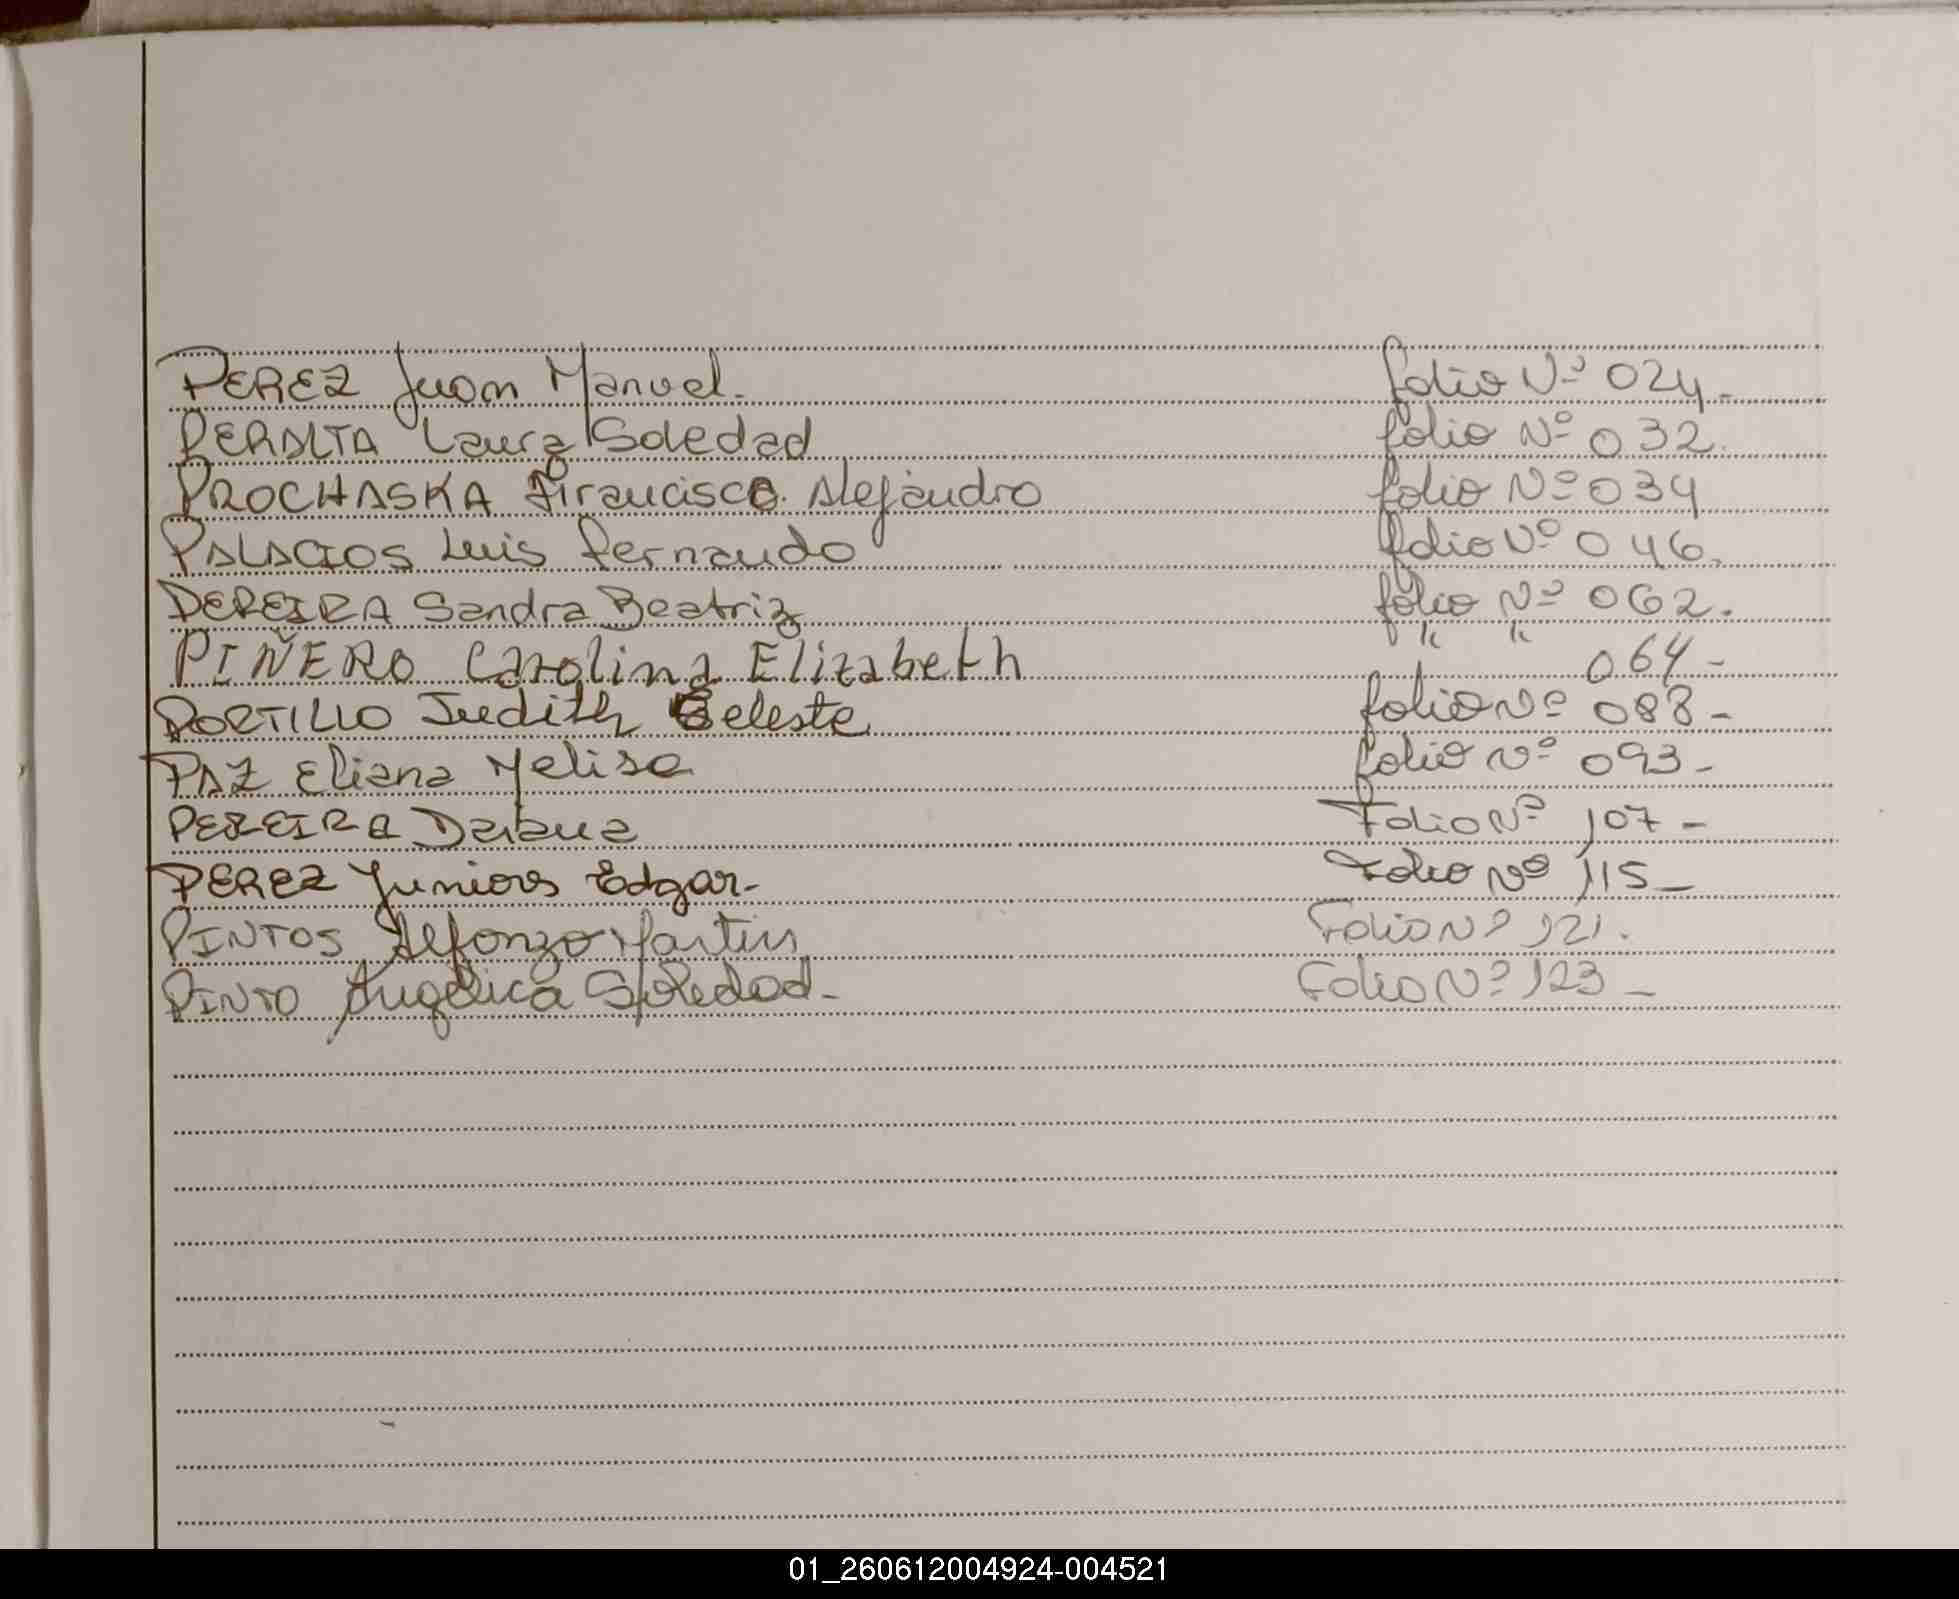 PEREZ Juan Manuel. folio Nº 024-
PERALTA Laura Soledad folio Nº 032.
PROCHASKA Francisco Alejandro folio Nº 034
PALACIOS Luis Fernando folio Nº 046.
PEREIRA Sandra Beatriz folio Nº 062.
PIÑERO Carolina Elizabeth " " 064-
PORTILLO Judith Celeste folio Nº 088-
PAZ Eliana Melisa folio Nº 093-
PEREIRA Daiana Folio Nº 107-
PEREZ Juniors Edgar- Folio Nº 115-
PINTOS Alfonzo Martin Folio Nº 121.
PINTO Angélica Soledad- Folio Nº 123-
01_260612004924-004521